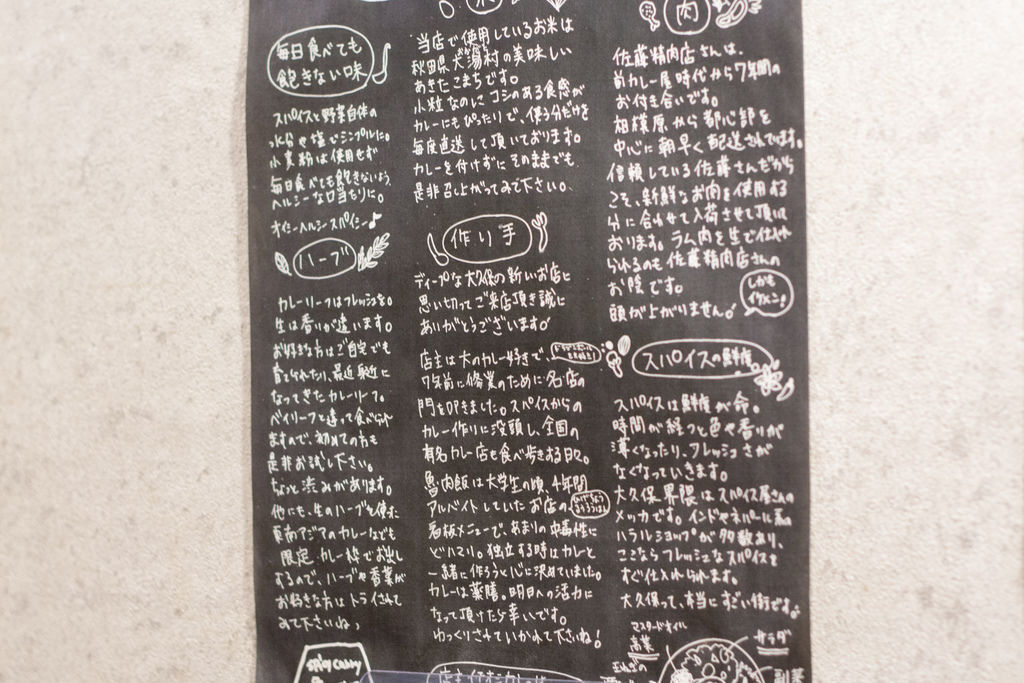 毎日食べても
飽きない味
スパイスと野菜自体の
水分や塩でシンプルに。
小麦粉は使用せず
毎日食べても飽きないよう、
ヘルシーな口当たりに。
オイシーヘルシースパイシー♪
ハーブ
カレーリーフはフレッシュを。
生は香りが違います。
お好きな方はご自宅でも
育てられたり、最近身近に
なってきたカレーリーフ。
ベイリーフと違って食べられ
ますので、初めての方も
是非お試し下さい。
ちょっと渋みがあります。
他にも、生のハーブを使た
東南アジアのカレーなども
限定カレー枠でお出し
するので、ハーブや香菜が
お好きな方はトライされて
みて下さいね♪
spicy curry
米
当店で使用しているお米は
秋田県大潟村の美味しい
あきたこまちです。
小粒なのにコシのある食感が
カレーにもぴったりで、使う分だけを
毎度直送して頂いております。
カレーを付けずにそのままでも
是非召し上がってみて下さい。
作り手
ディープな大久保の新しいお店に
思い切ってご来店頂き誠に
ありがとうございます!
店主は大のカレー好きで、
7年前に修業のために名店の
門を叩きました。スパイスからの
カレー作りに没頭し、全国の
有名カレー店を食べ歩きする日々。
魯肉飯は大学生の頃、4年間
アルバイトしていたお店の
看板メニューで、あまりの中毒性に
どハマり。独立する時はカレーと
一緒に作ろうと心に決めていました。
カレーは薬膳。明日への活力に
なって頂けたら幸いです。
ゆっくりされていかれて下さいね!
店主イチオシカレーは
肉
佐藤精肉店さんは、
前カレー屋時代から7年間の
お付き合いです。
相模原から都心部を
中心に朝早く配送されています。
信頼している佐藤さんだから
こそ、新鮮なお肉を使用する
分に合わせて入荷させて頂いて
おります。ラム肉を生で仕入れ
られるのも佐藤精肉店さんの
お陰です。
頭が上がりません!
しかも
イケメン!
スパイスの鮮度
スパイスは鮮度が命。
時間が経つと色や香りが
薄くなったり、フレッシュさが
なくなっていきます。
大久保界隈はスパイス屋さんの
メッカです。インドやネパール系の
ハラルショップが多数あり、
ここならフレッシュなスパイスを
すぐ仕入れられます。
大久保って、本当にすごい街です。
マスタードオイル
高菜
サラダ
副菜